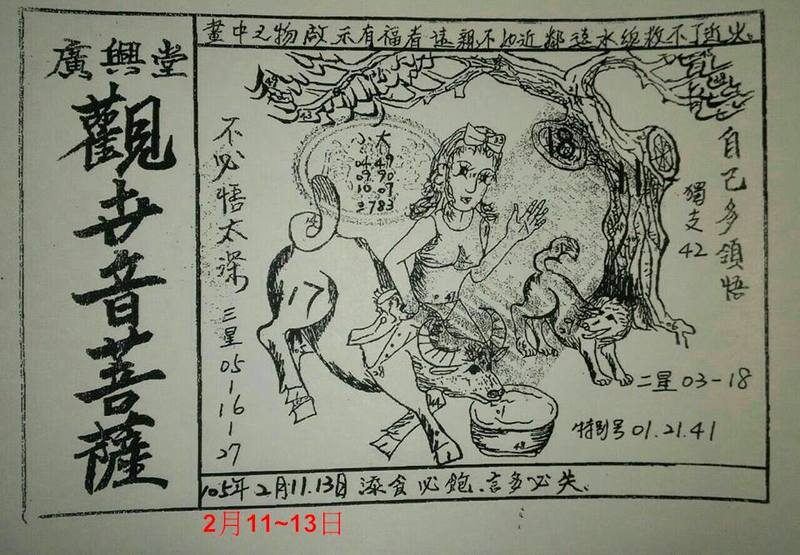 畫中之物啟示有福者遠親不如近鄰遠水總救不了近火
廣興堂
觀世音菩薩
不必悟太深
三星05-16-27
小 大
04.49
09.90
10.07
3783
18
17
自己多領悟
獨支42
二星03-18
特別号01.21.41
105年2月11.13日 食必飽.言多必失.
2月11~13日